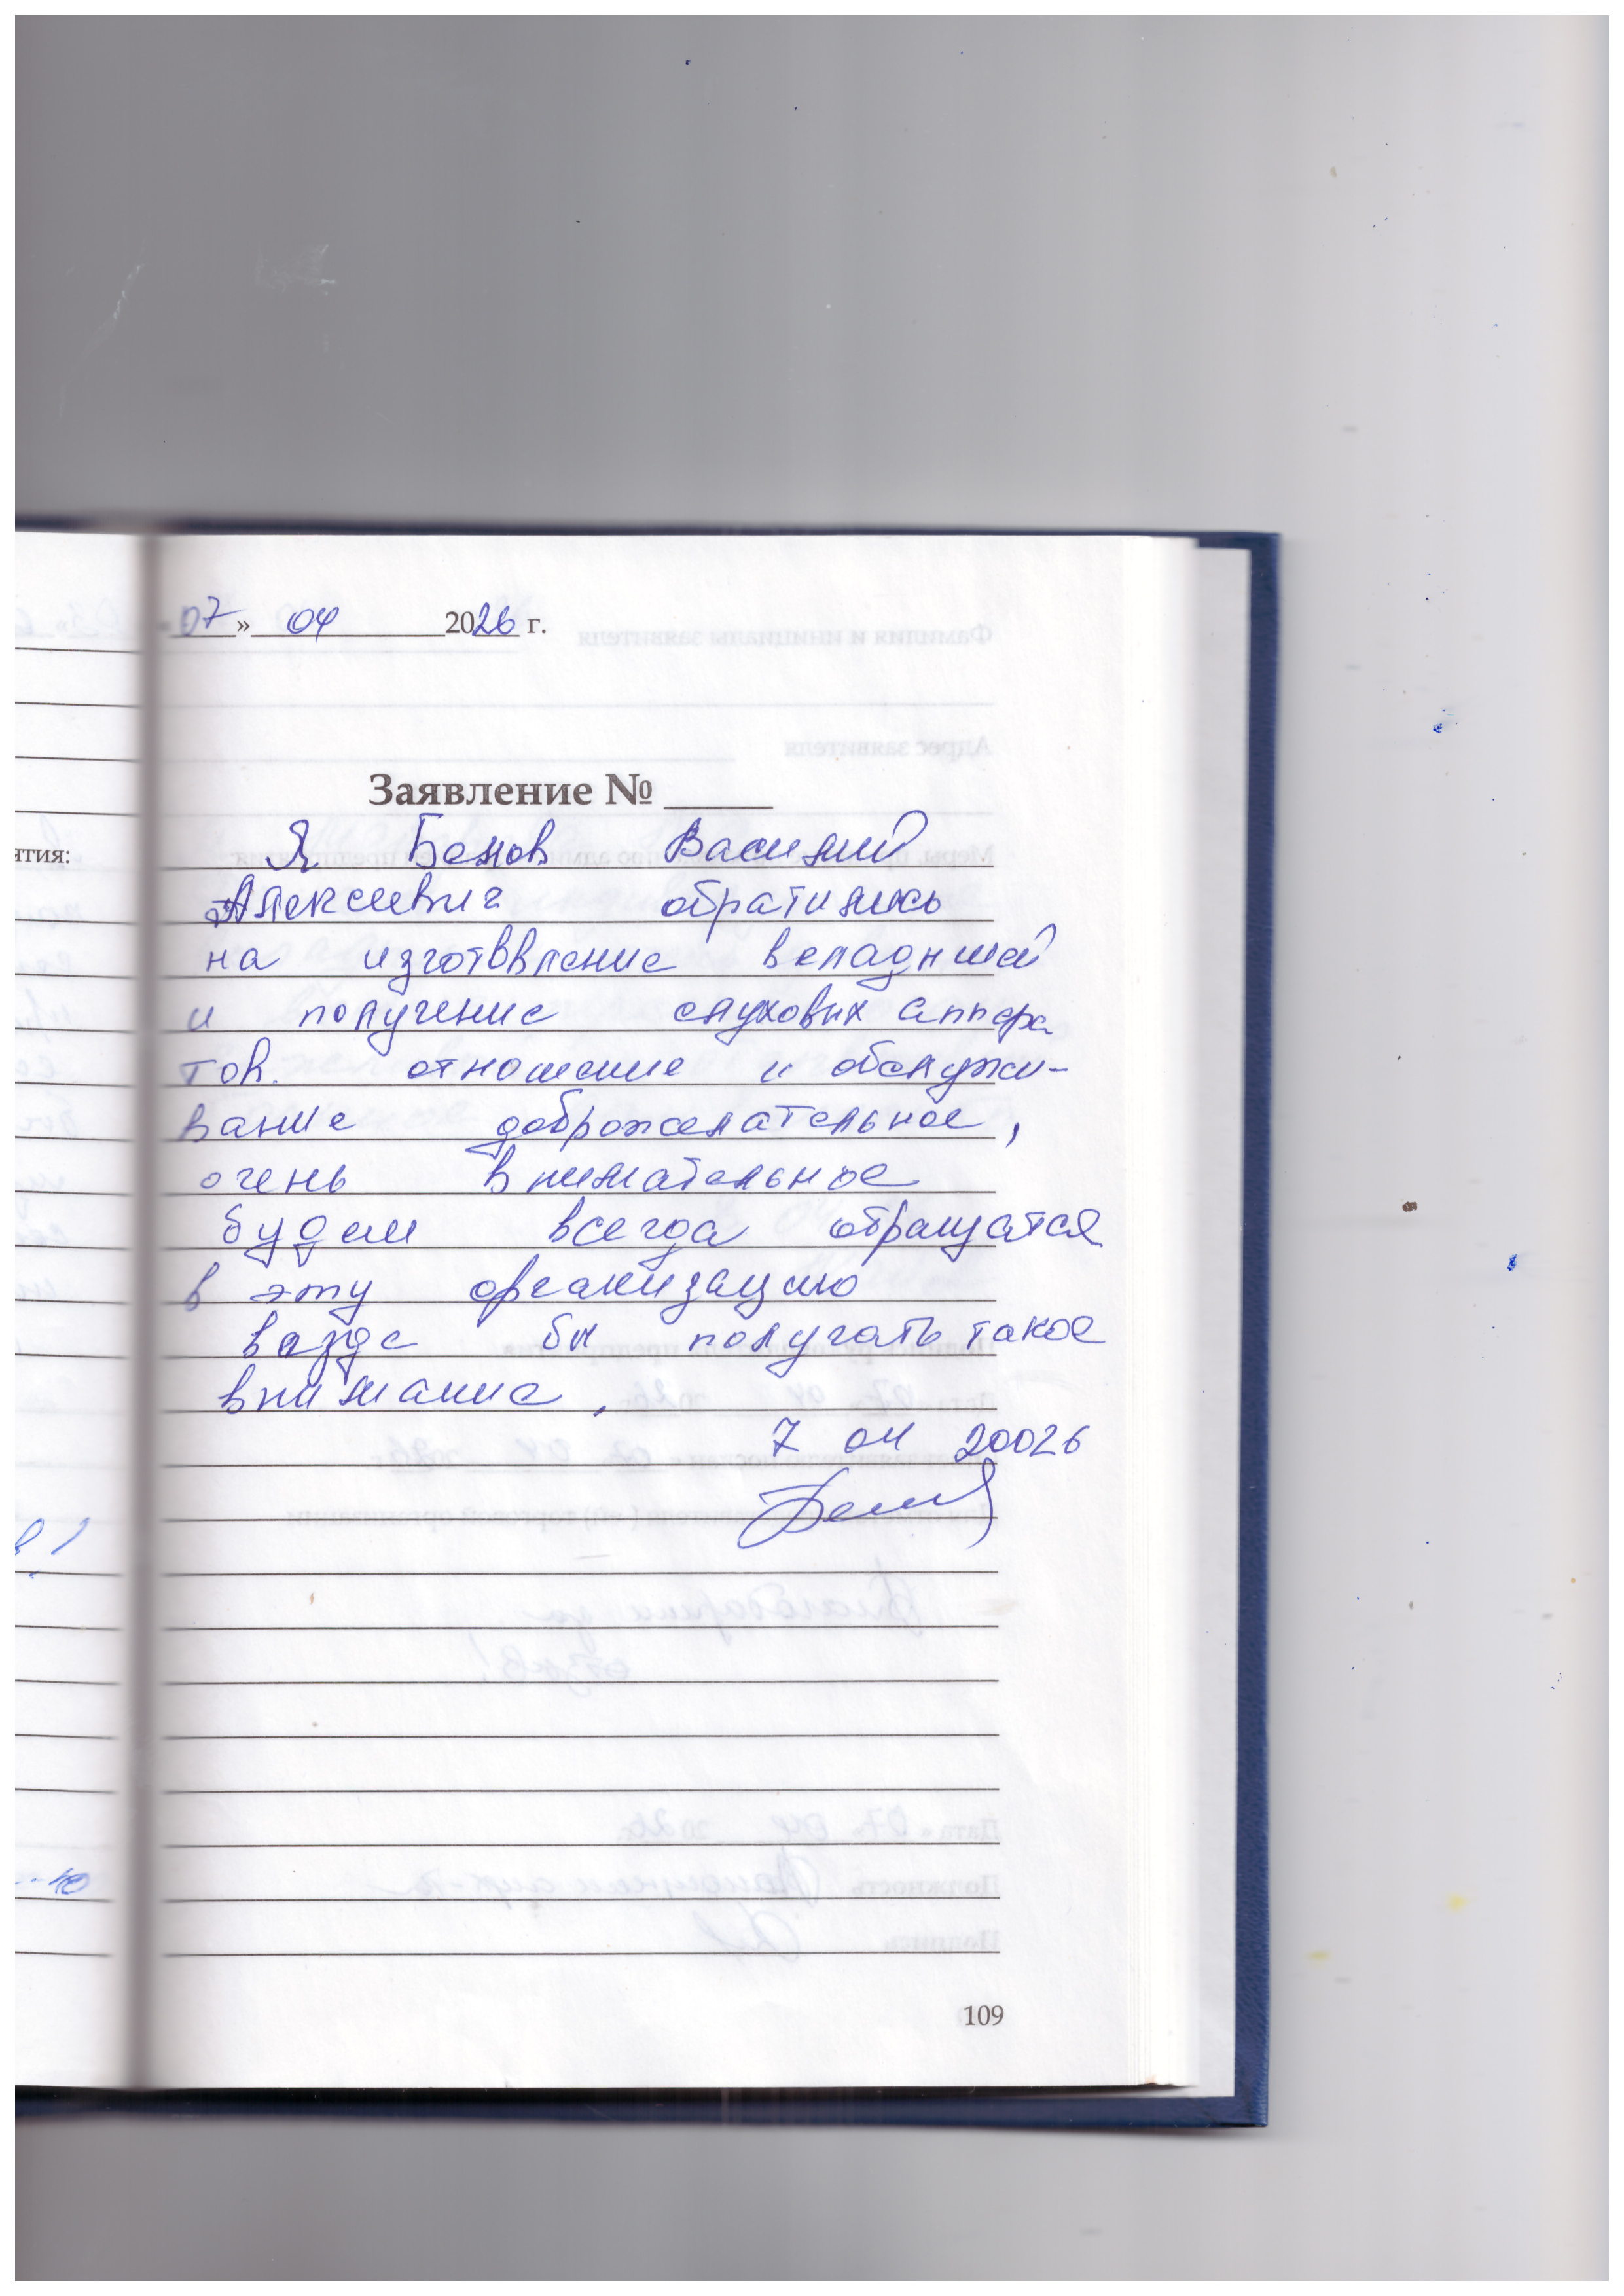 «07» 04 2026 г.
Заявление № ____
Я Белов Василий
Алексеевич обратились
на изготввление вкладышей
и получение слуховых аппера
тов. отношение и обслужи-
вание доброжелательное,
очень внимательное
будем всегда обращатся
в эту организацию
везде бы получать такое
внимание.
7 04 20026
ятия:
109